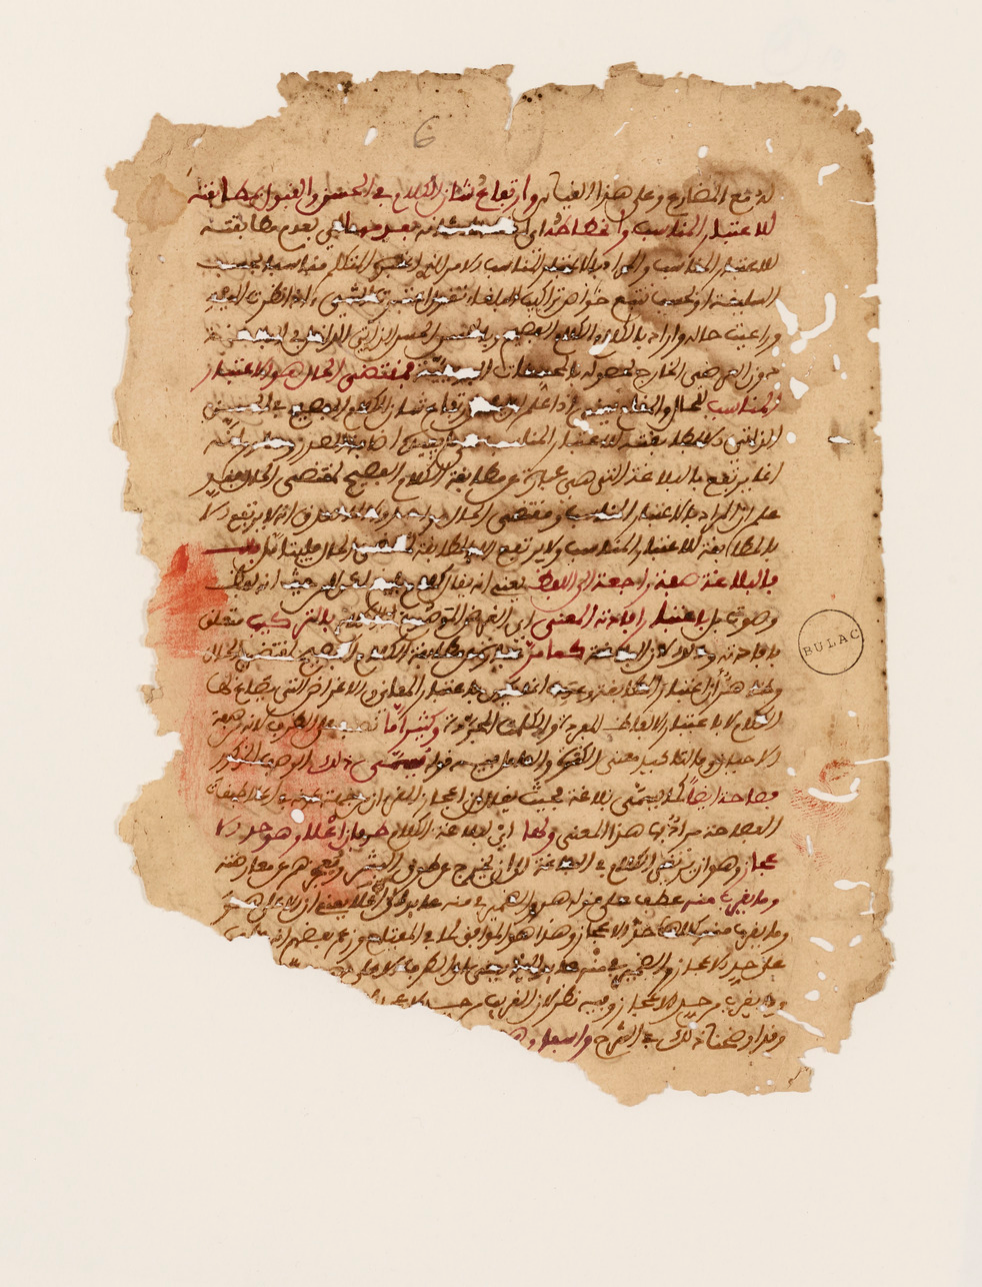 مع المضارع وعلى هذا القياس وارتفاع شان الكلام في الحسن والقبول بمطابقته
للاعتبار المناسب وانحطاطه اي بعدمها اي بعدم مطابقته
للاعتبار المناسب والمراد بالاعتبار المناسب الامر الذي اعتبره المتكلم مناسبا بحسب
السليقة او بحسب تتبع خواص تراكيب البلغاء تقول اعتبرت الشيء اذا نظرت اليه
وراعيت حاله واراد بالكلام الكلام الفصيح وبالحسن الحسن الذاتي الداخل في البلاغة
دون العرضي الخارج لحصوله بالمحسنات البديعية فمقتضى الحال هو الاعتبار
المناسب للحال والمقام يعني اذا علم ارتفاع شان الكلام الفصيح في الحسن
الذاتي الا بمطابقته للاعتبار المناسب اضافة المصدر ومعلوم انه
انما يرتفع بالبلاغة التي هي عبارة عن مطابقة الكلام الفصيح لمقتضى الحال فقد
علم ان المراد بالاعتبار المناسب ومقتضى الحال واحد والا لما صدق انه لا يرتفع الا
بالمطابقة للاعتبار المناسب ولا يرتفع الا بالمطابقة لمقتضى الحال فليتامل
فالبلاغة صفة راجعة الى اللفظ يعني انه يقال كلام بليغ لكن لا من حيث انه لفظ
وصوت بل باعتبار افادته المعنى اي الغرض المصوغ له الكلام بالتركيب متعلق
بافادته وذلك لان البلاغة كما مر عبارة عن مطابقة الكلام الفصيح لمقتضى الحال
وظاهر ان اعتبار المطابقة وعدمها انما يكون باعتبار المعاني والاغراض التي يصاغ لها
الكلام لا باعتبار الالفاظ المفردة والكلم المجردة وكثيرا ما نصب على الظرف لانه من صفة
الاحيان وما لتاكيد معنى الكثرة والعامل فيه قوله يسمى ذلك الوصف المذكور
فصاحة ايضا كما يسمى بلاغة فحيث يقال ان اعجاز القران من جهة كونه في اعلا طبقات
الفصاحة يراد بها هذا المعنى ولها اي لبلاغة الكلام طرفان اعلا وهو حد الا
عجاز وهو ان يرتقي الكلام في بلاغته الى ان يخرج عن طوق البشر ويعجزهم عن معارضته
وما يقرب منه عطف على قوله هو والضمير في منه عايد الى اعلا يعني ان الاعلى هو
وما يقرب منه كلاهما حد الاعجاز وهذا هو الموافق لما في المفتاح وزعم بعضهم انه عطف
على حد الاعجاز والضمير في منه عايد اليه يعني ان الطرف الاعلى
وما يقرب من حد الاعجاز وفيه نظر لان القريب من حد الاعجاز
وقد اوضحنا ذلك في الشرح واسفل وهو
6
BULAC